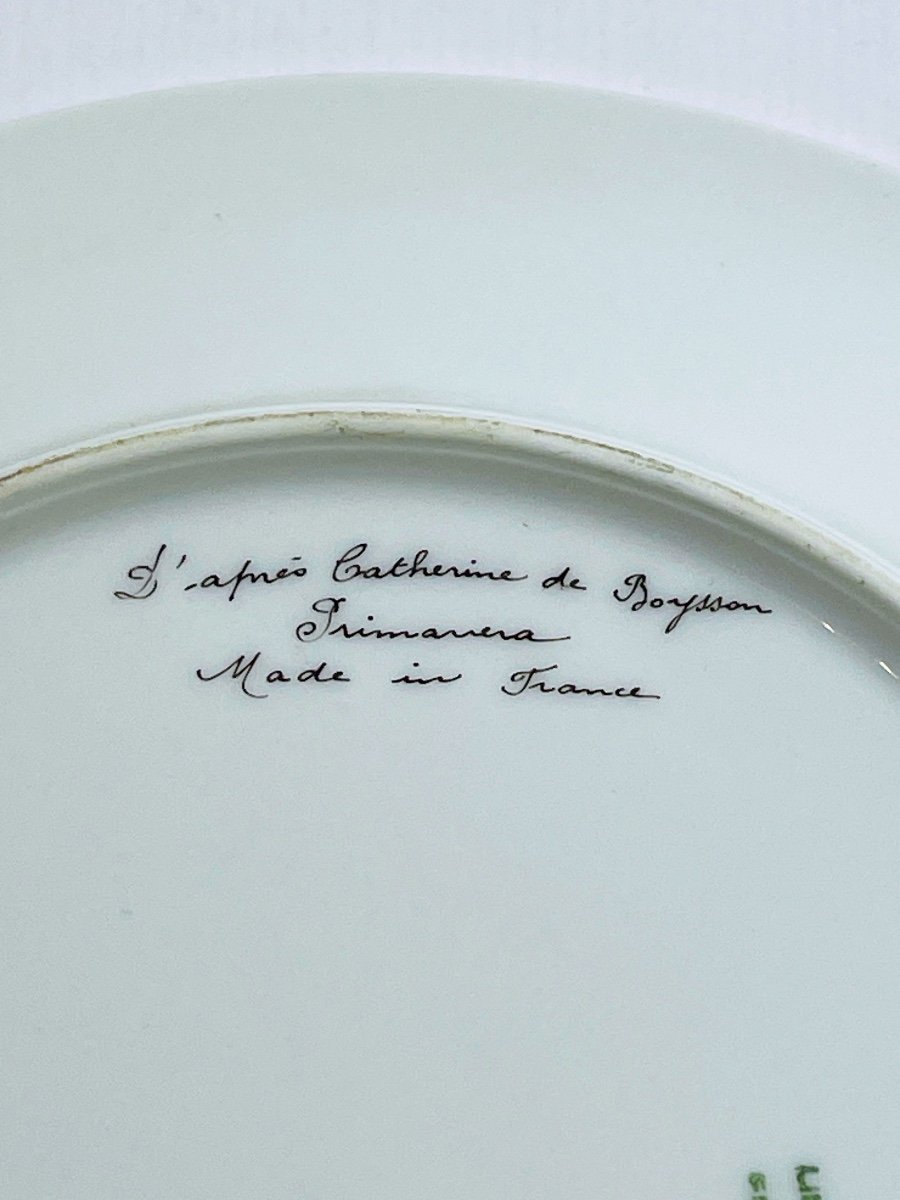 D'après Catherine de Boysson
Primavera
Made in France